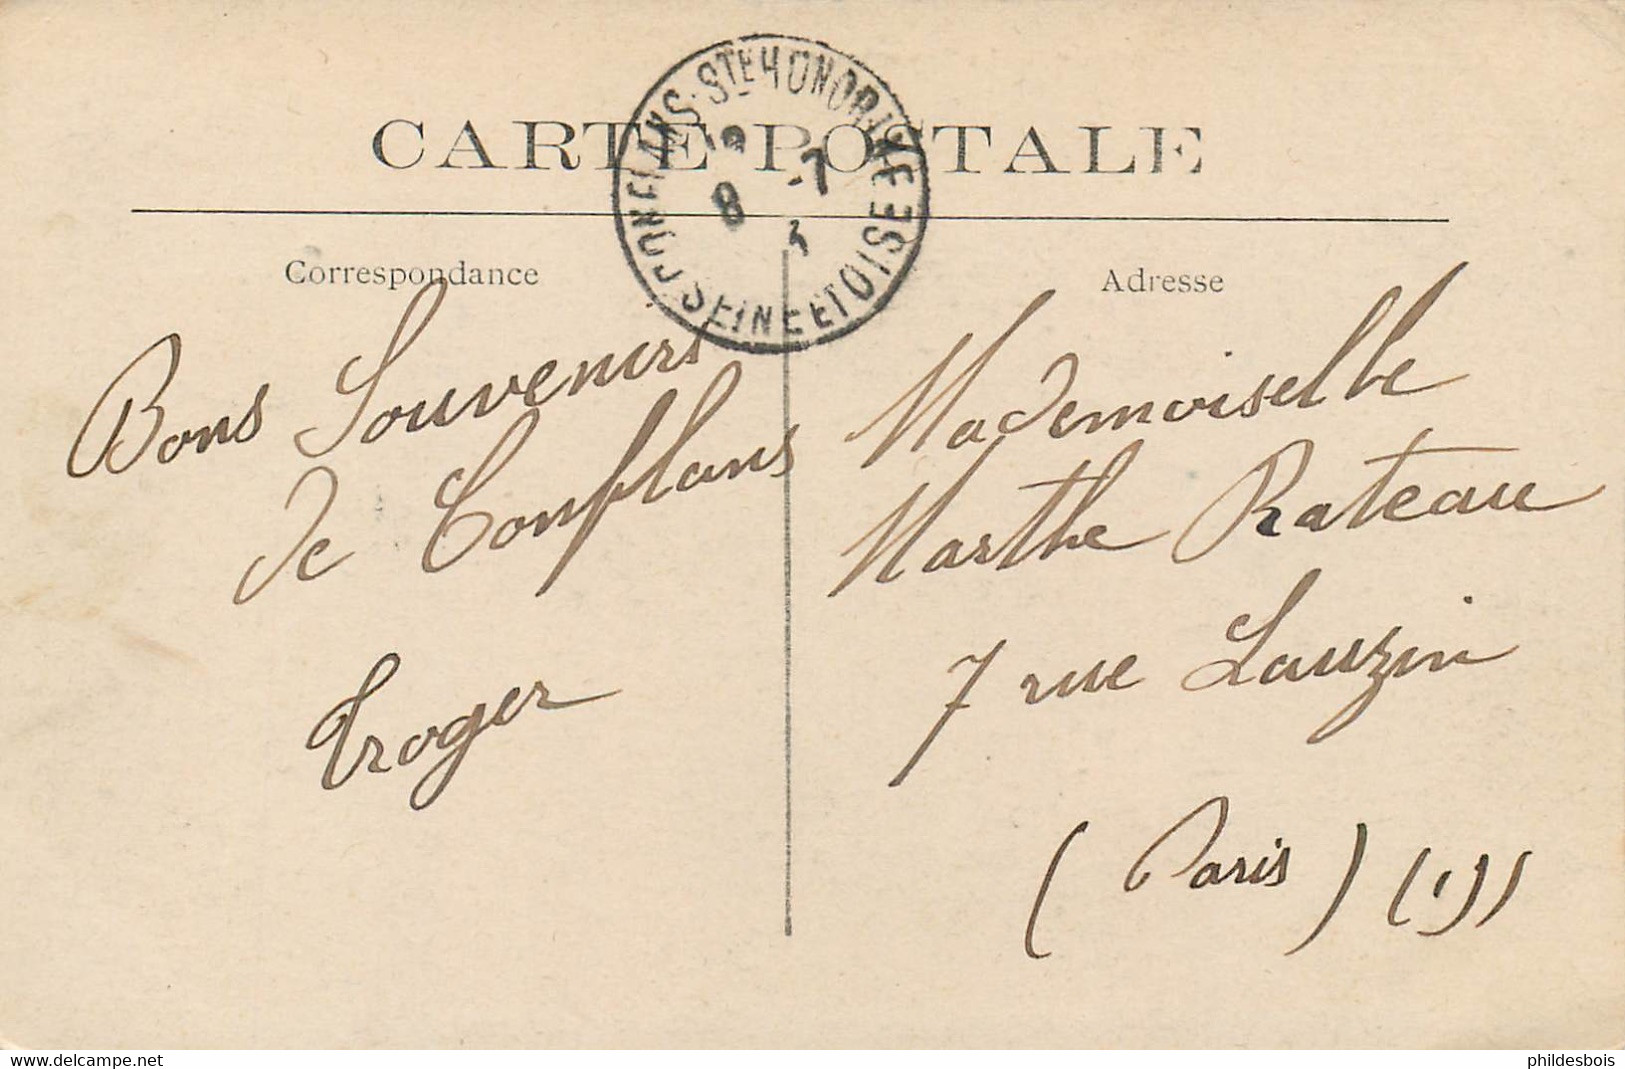 CARTE POSTALE
CONFLANS-STE HONORINE
8 -7
SEINE ET OISE
Correspondance
Bons Souvenirs
de Conflans
Troger
Adresse
Mademoiselle
Marthe Rateau
7 rue Lauzin
(Paris)
delcampe.net
phildesbois